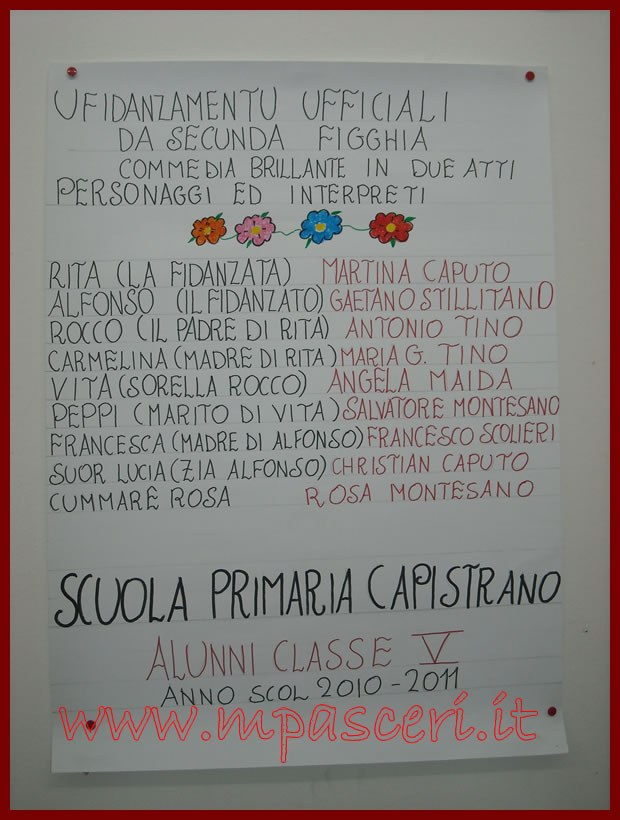 UFIDANZAMENTU UFFICIALI
DA SECUNDA FIGGHIA
COMMEDIA BRILLANTE IN DUE ATTI
PERSONAGGI ED INTERPRETI
RITA (LA FIDANZATA) MARTINA CAPUTO
ALFONSO (IL FIDANZATO) GAETANO STILLITANO
ROCCO (IL PADRE DI RITA) ANTONIO TINO
CARMELINA (MADRE DI RITA) MARIA G. TINO
VITA (SORELLA ROCCO) ANGELA MAIDA
PEPPI (MARITO DI VITA) SALVATORE MONTESANO
FRANCESCA (MADRE DI ALFONSO) FRANCESCO SCOLIERI
SUOR LUCIA (ZIA ALFONSO) CHRISTIAN CAPUTO
CUMMARÈ ROSA ROSA MONTESANO
SCUOLA PRIMARIA CAPISTRANO
ALUNNI CLASSE V
ANNO SCOL 2010-2011
www.mpasceri.it